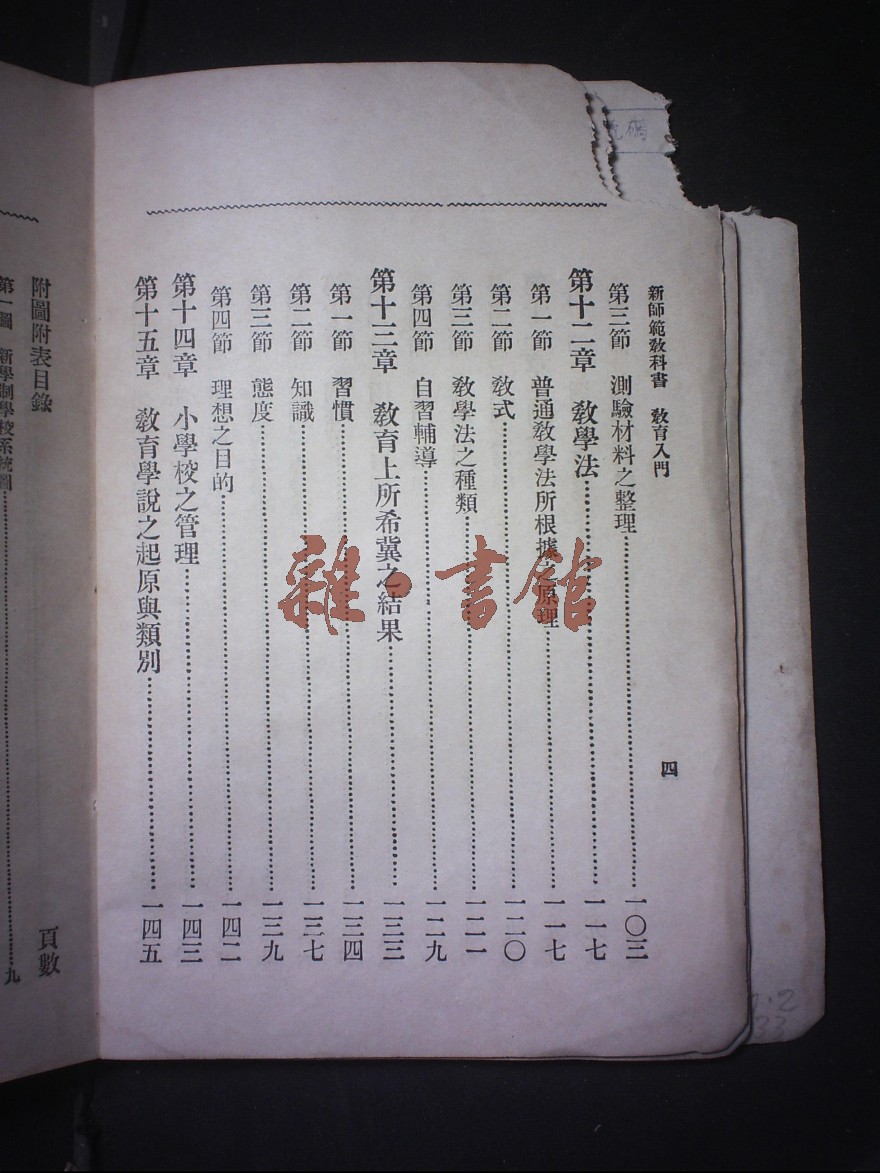 新師範教科書　教育入門
四
第三節　測驗材料之整理……一〇三
第十二章　教學法……一一七
第一節　普通教學法所根據之原理……一一七
第二節　教式……一二〇
第三節　教學法之種類……一二一
第四節　自習輔導……一二九
第十三章　教育上所希冀之結果……一三三
第一節　習慣……一三四
第二節　知識……一三七
第三節　態度……一三九
第四節　理想之目的……一四二
第十四章　小學校之管理……一四三
第十五章　教育學說之起原與類別……一四五
附圖附表目錄　頁數
第一圖　新學制學校系統圖……九
雜·書館